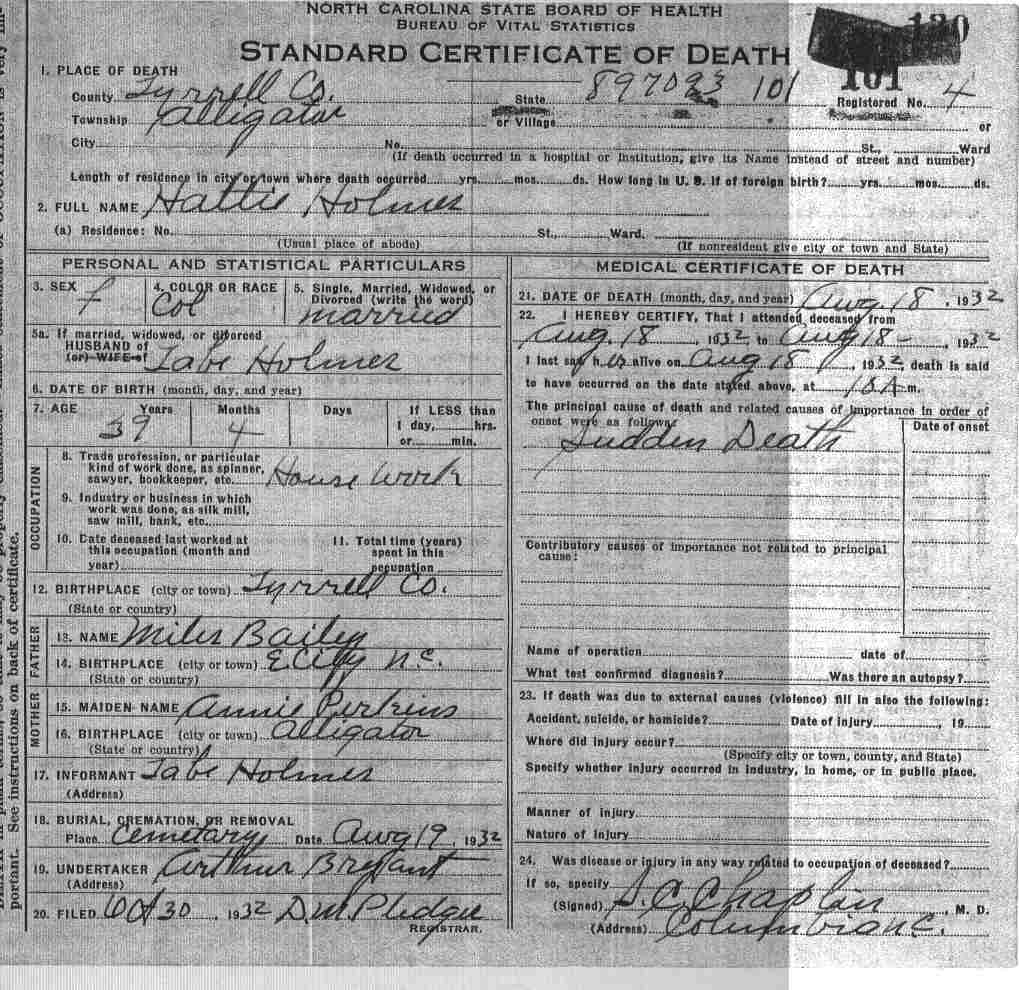 NORTH CAROLINA STATE BOARD OF HEALTH
BUREAU OF VITAL STATISTICS
STANDARD CERTIFICATE OF DEATH
130
101
1. PLACE OF DEATH
County Tyrrell Co. State 897093 101 Registered No. 4
Township Alligator or Village or
City No. St., Ward
(If death occurred in a hospital or institution, give its Name instead of street and number)
Length of residence in city or town where death occurred yrs. mos. ds. How long in U. S. if of foreign birth? yrs. mos. ds.
2. FULL NAME Hattie Holmes
(a) Residence: No. St., Ward.
(Usual place of abode) (If nonresident give city or town and State)
PERSONAL AND STATISTICAL PARTICULARS
3. SEX f 4. COLOR OR RACE Col 5. Single, Married, Widowed, or Divorced (write the word) married
5a. If married, widowed, or divorced
HUSBAND of
(or) WIFE of Tabe Holmes
6. DATE OF BIRTH (month, day, and year)
7. AGE Years Months Days If LESS than
39 4 1 day, hrs.
or min.
OCCUPATION
8. Trade profession, or particular
kind of work done, as spinner,
sawyer, bookkeeper, etc. House work
9. Industry or business in which
work was done, as silk mill,
saw mill, bank, etc.
10. Date deceased last worked at
this occupation (month and
year)
11. Total time (years)
spent in this
occupation
12. BIRTHPLACE (city or town) Tyrrell Co.
(State or country)
FATHER
13. NAME Miles Bailey
14. BIRTHPLACE (city or town) E City N.C.
(State or country)
MOTHER
15. MAIDEN NAME Annie Perkins
16. BIRTHPLACE (city or town) Alligator
(State or country)
17. INFORMANT Tabe Holmes
(Address)
18. BURIAL, CREMATION, OR REMOVAL
Place Cemetary Date Aug 19, 1932
19. UNDERTAKER Arthur Bryant
(Address)
20. FILED Oct 30, 1932 D.M. Pledger
REGISTRAR.
MEDICAL CERTIFICATE OF DEATH
21. DATE OF DEATH (month, day, and year) Aug. 18, 1932
22. I HEREBY CERTIFY, That I attended deceased from
Aug. 18, 1932 to Aug 18-, 1932
I last saw her alive on Aug 18, 1932, death is said
to have occurred on the date stated above, at 10 A m.
The principal cause of death and related causes of importance in order of
onset were as follows: Date of onset
Sudden Death
Contributory causes of importance not related to principal
cause:
Name of operation date of
What test confirmed diagnosis? Was there an autopsy?
23. If death was due to external causes (violence) fill in also the following:
Accident, suicide, or homicide? Date of injury, 19
Where did injury occur?
(Specify city or town, county, and State)
Specify whether injury occurred in industry, in home, or in public place.
Manner of injury
Nature of injury
24. Was disease or injury in any way related to occupation of deceased?
If so, specify
(Signed) S. C. Chaplin, M. D.
(Address) Columbia N.C.
portant. See instructions on back of certificate.